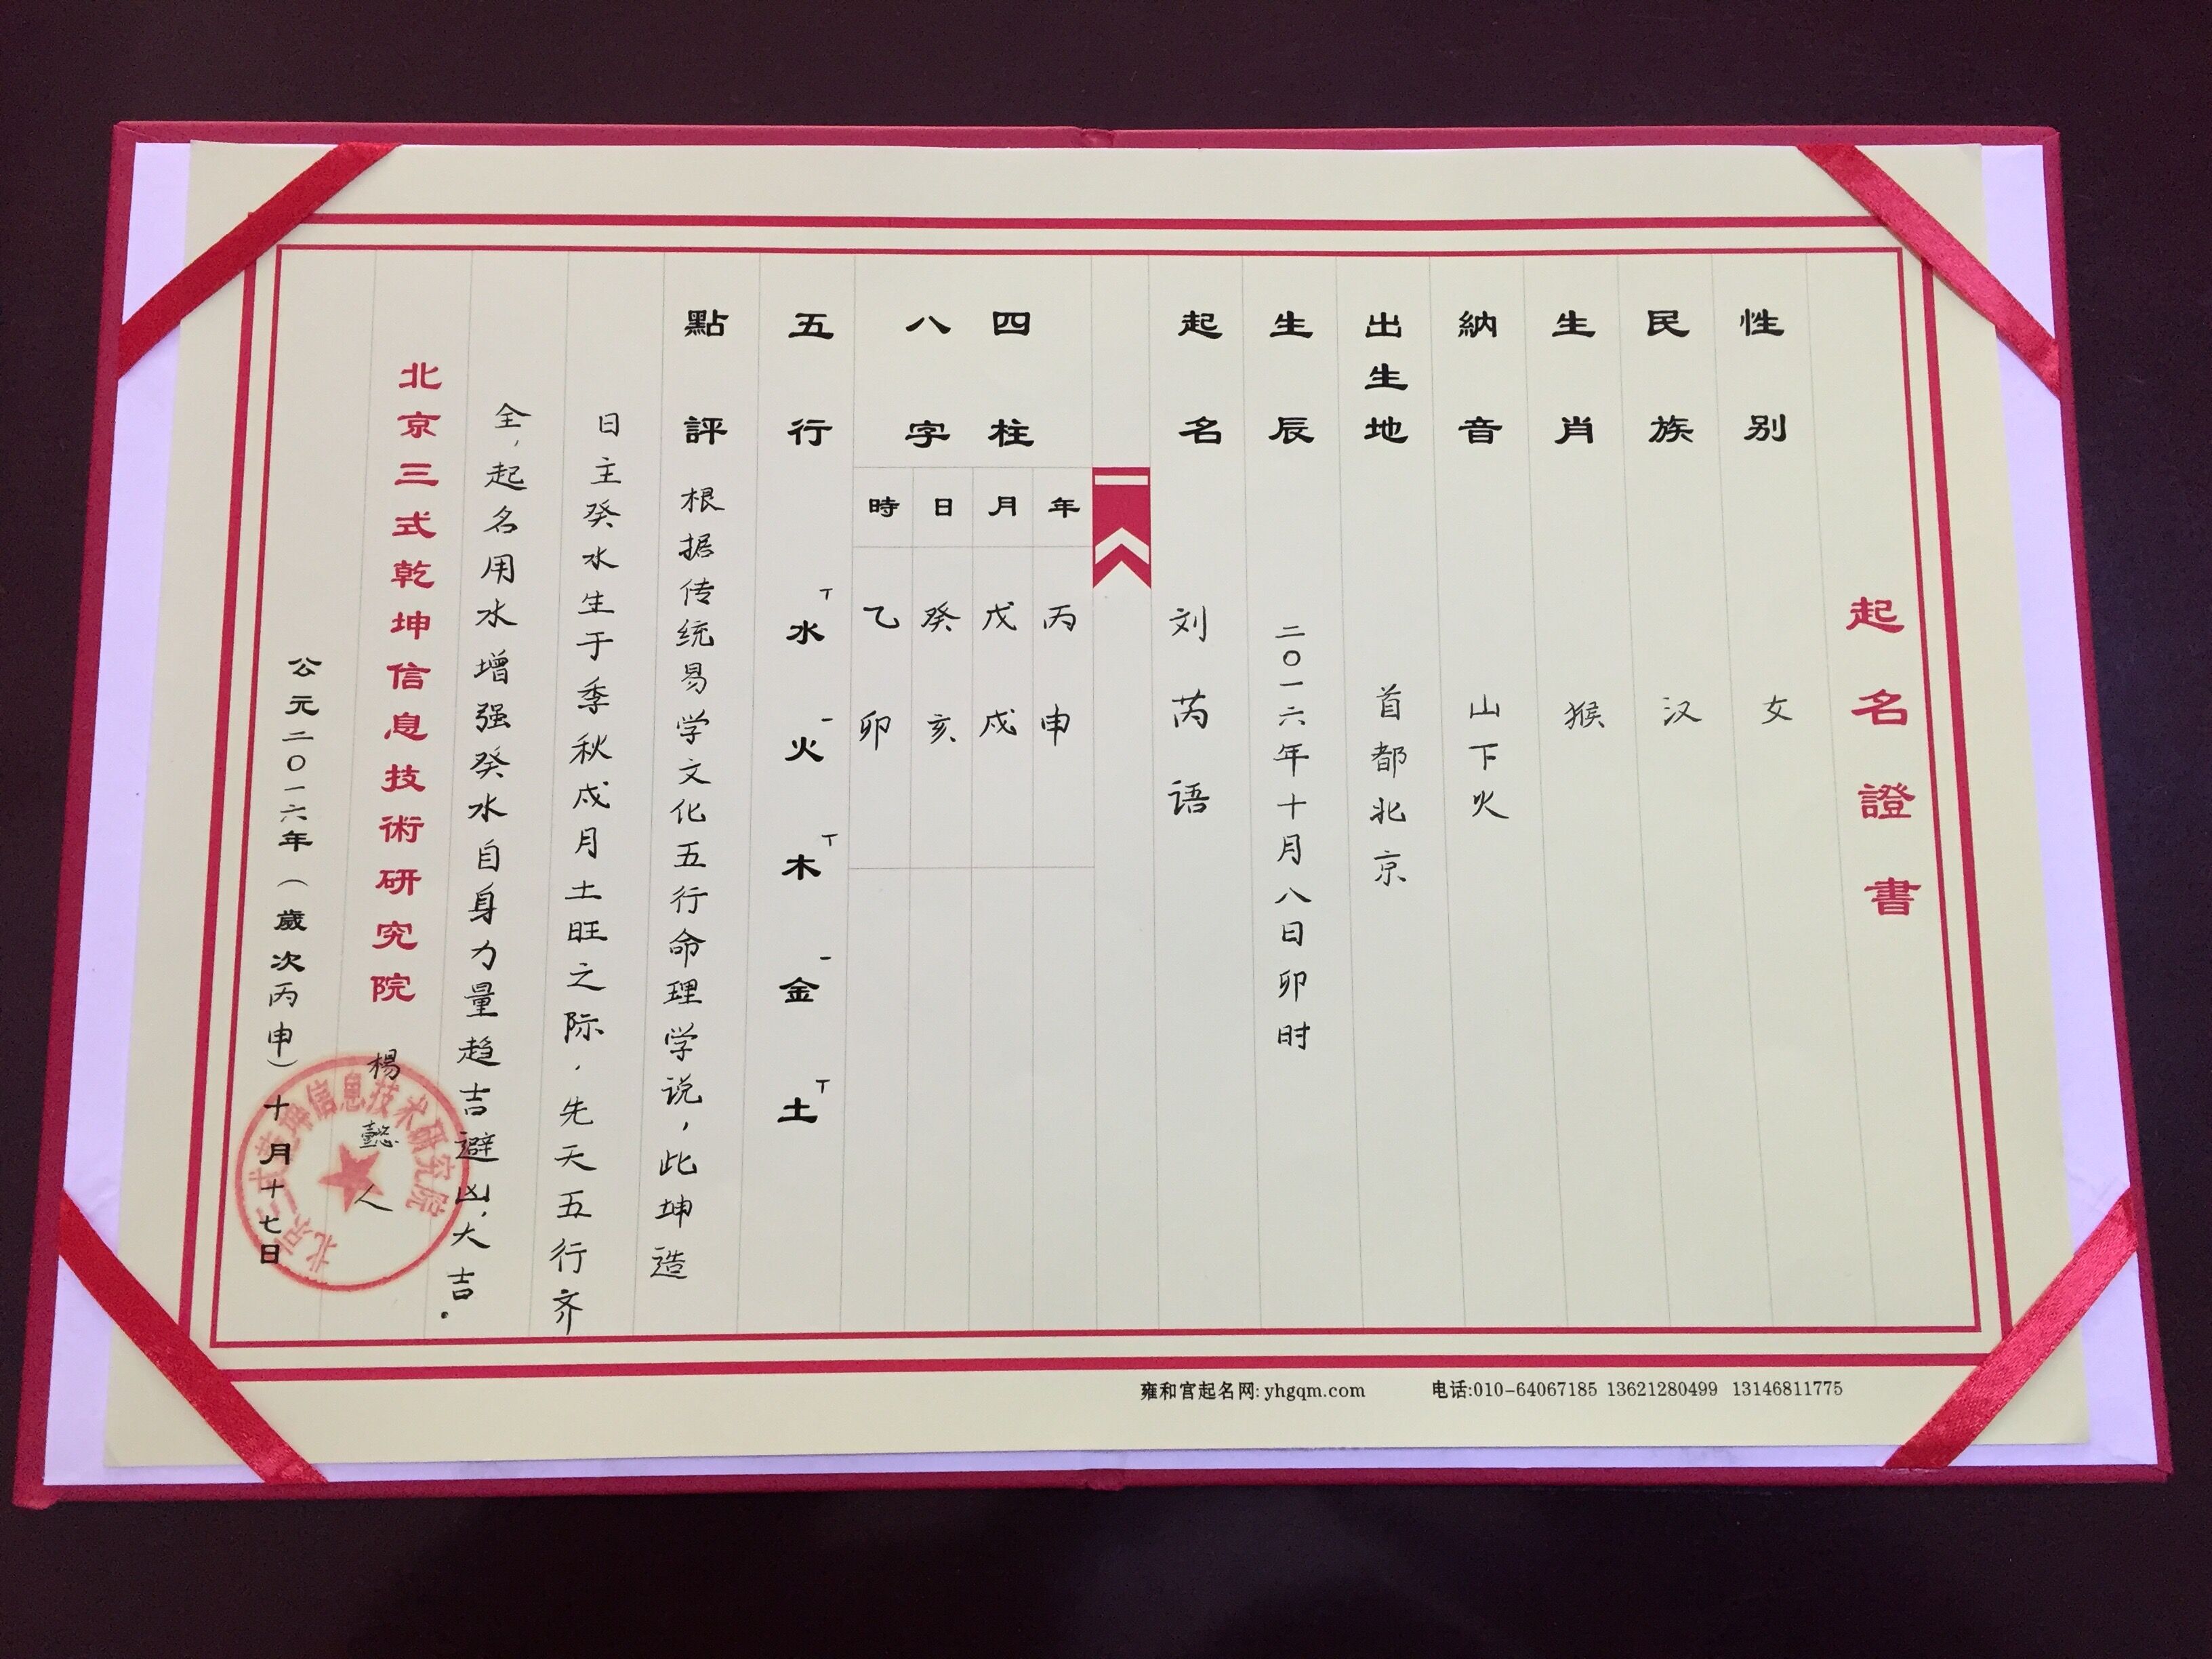 起名證書
性別 女
民族 汉
生肖 猴
納音 山下火
出生地 首都北京
生辰 二〇一六年十月八日卯时
起名 刘芮语
四柱
八字
年 丙申
月 戊戌
日 癸亥
時 乙卯
五行 水T 火一 木T 金一 土T
點評 根据传统易学文化五行命理学说，此坤造
日主癸水生于季秋戌月土旺之际，先天五行齐
全，起名用水增强癸水自身力量趋吉避凶，大吉。
北京三式乾坤信息技術研究院 楊懿人
公元二〇一六年（歲次丙申）十月十七日
北京三式乾坤信息技术研究院
雍和宫起名网: yhgqm.com 电话:010-64067185 13621280499 13146811775